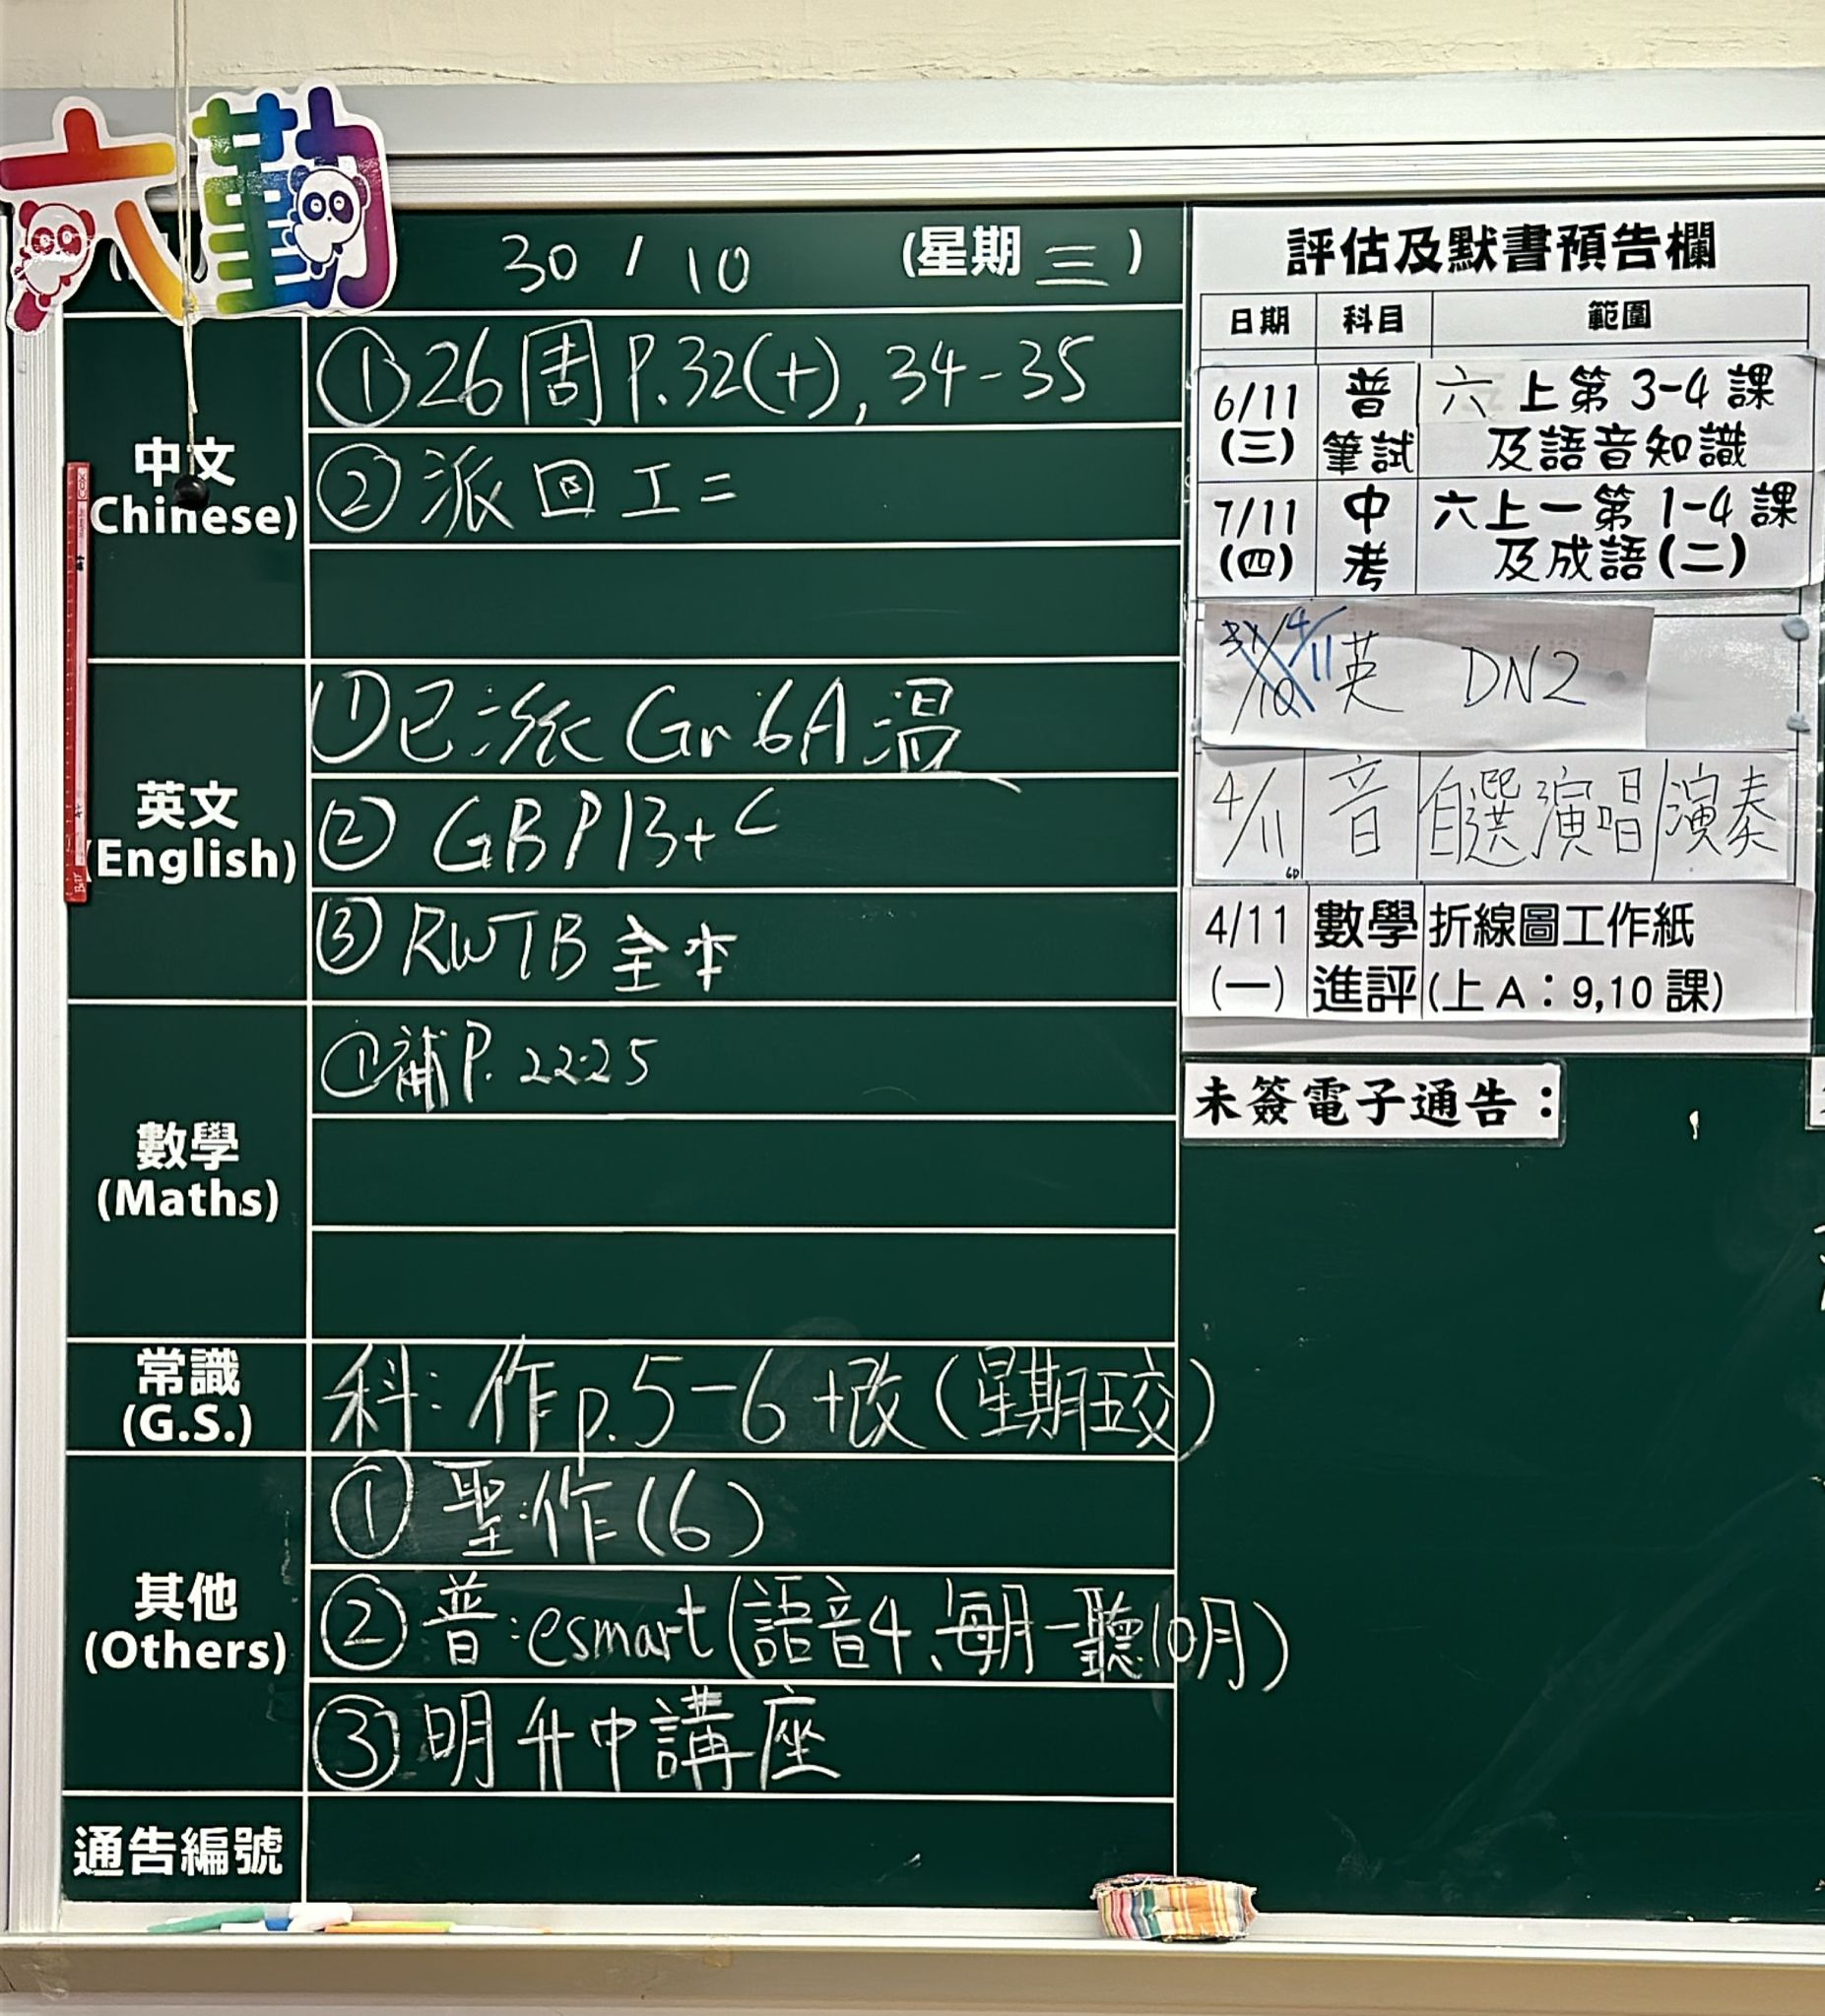 六勤
30 / 10 (星期 三 )
中文
(Chinese)
① 26周 P.32(+), 34-35
② 派回工二
英文
(English)
① 已派 Gr 6A 温
② GB P13+C
③ RWTB 全本
數學
(Maths)
① 補 P. 22-25
常識
(G.S.)
科: 作 p.5-6 +改 (星期五交)
其他
(Others)
① 聖:作(6)
② 普:esmart(語音4、每月一聽10月)
③ 明升中講座
通告編號
評估及默書預告欄
日期 科目 範圍
6/11 普 六 上第 3-4 課
(三) 筆試 及語音知識
7/11 中 六上一第 1-4 課
(四) 考 及成語(二)
31/10 4/11 英 DN2
4/11 音 自選演唱/演奏
6D
4/11 數學 折線圖工作紙
(一) 進評 (上 A：9,10 課)
未簽電子通告：